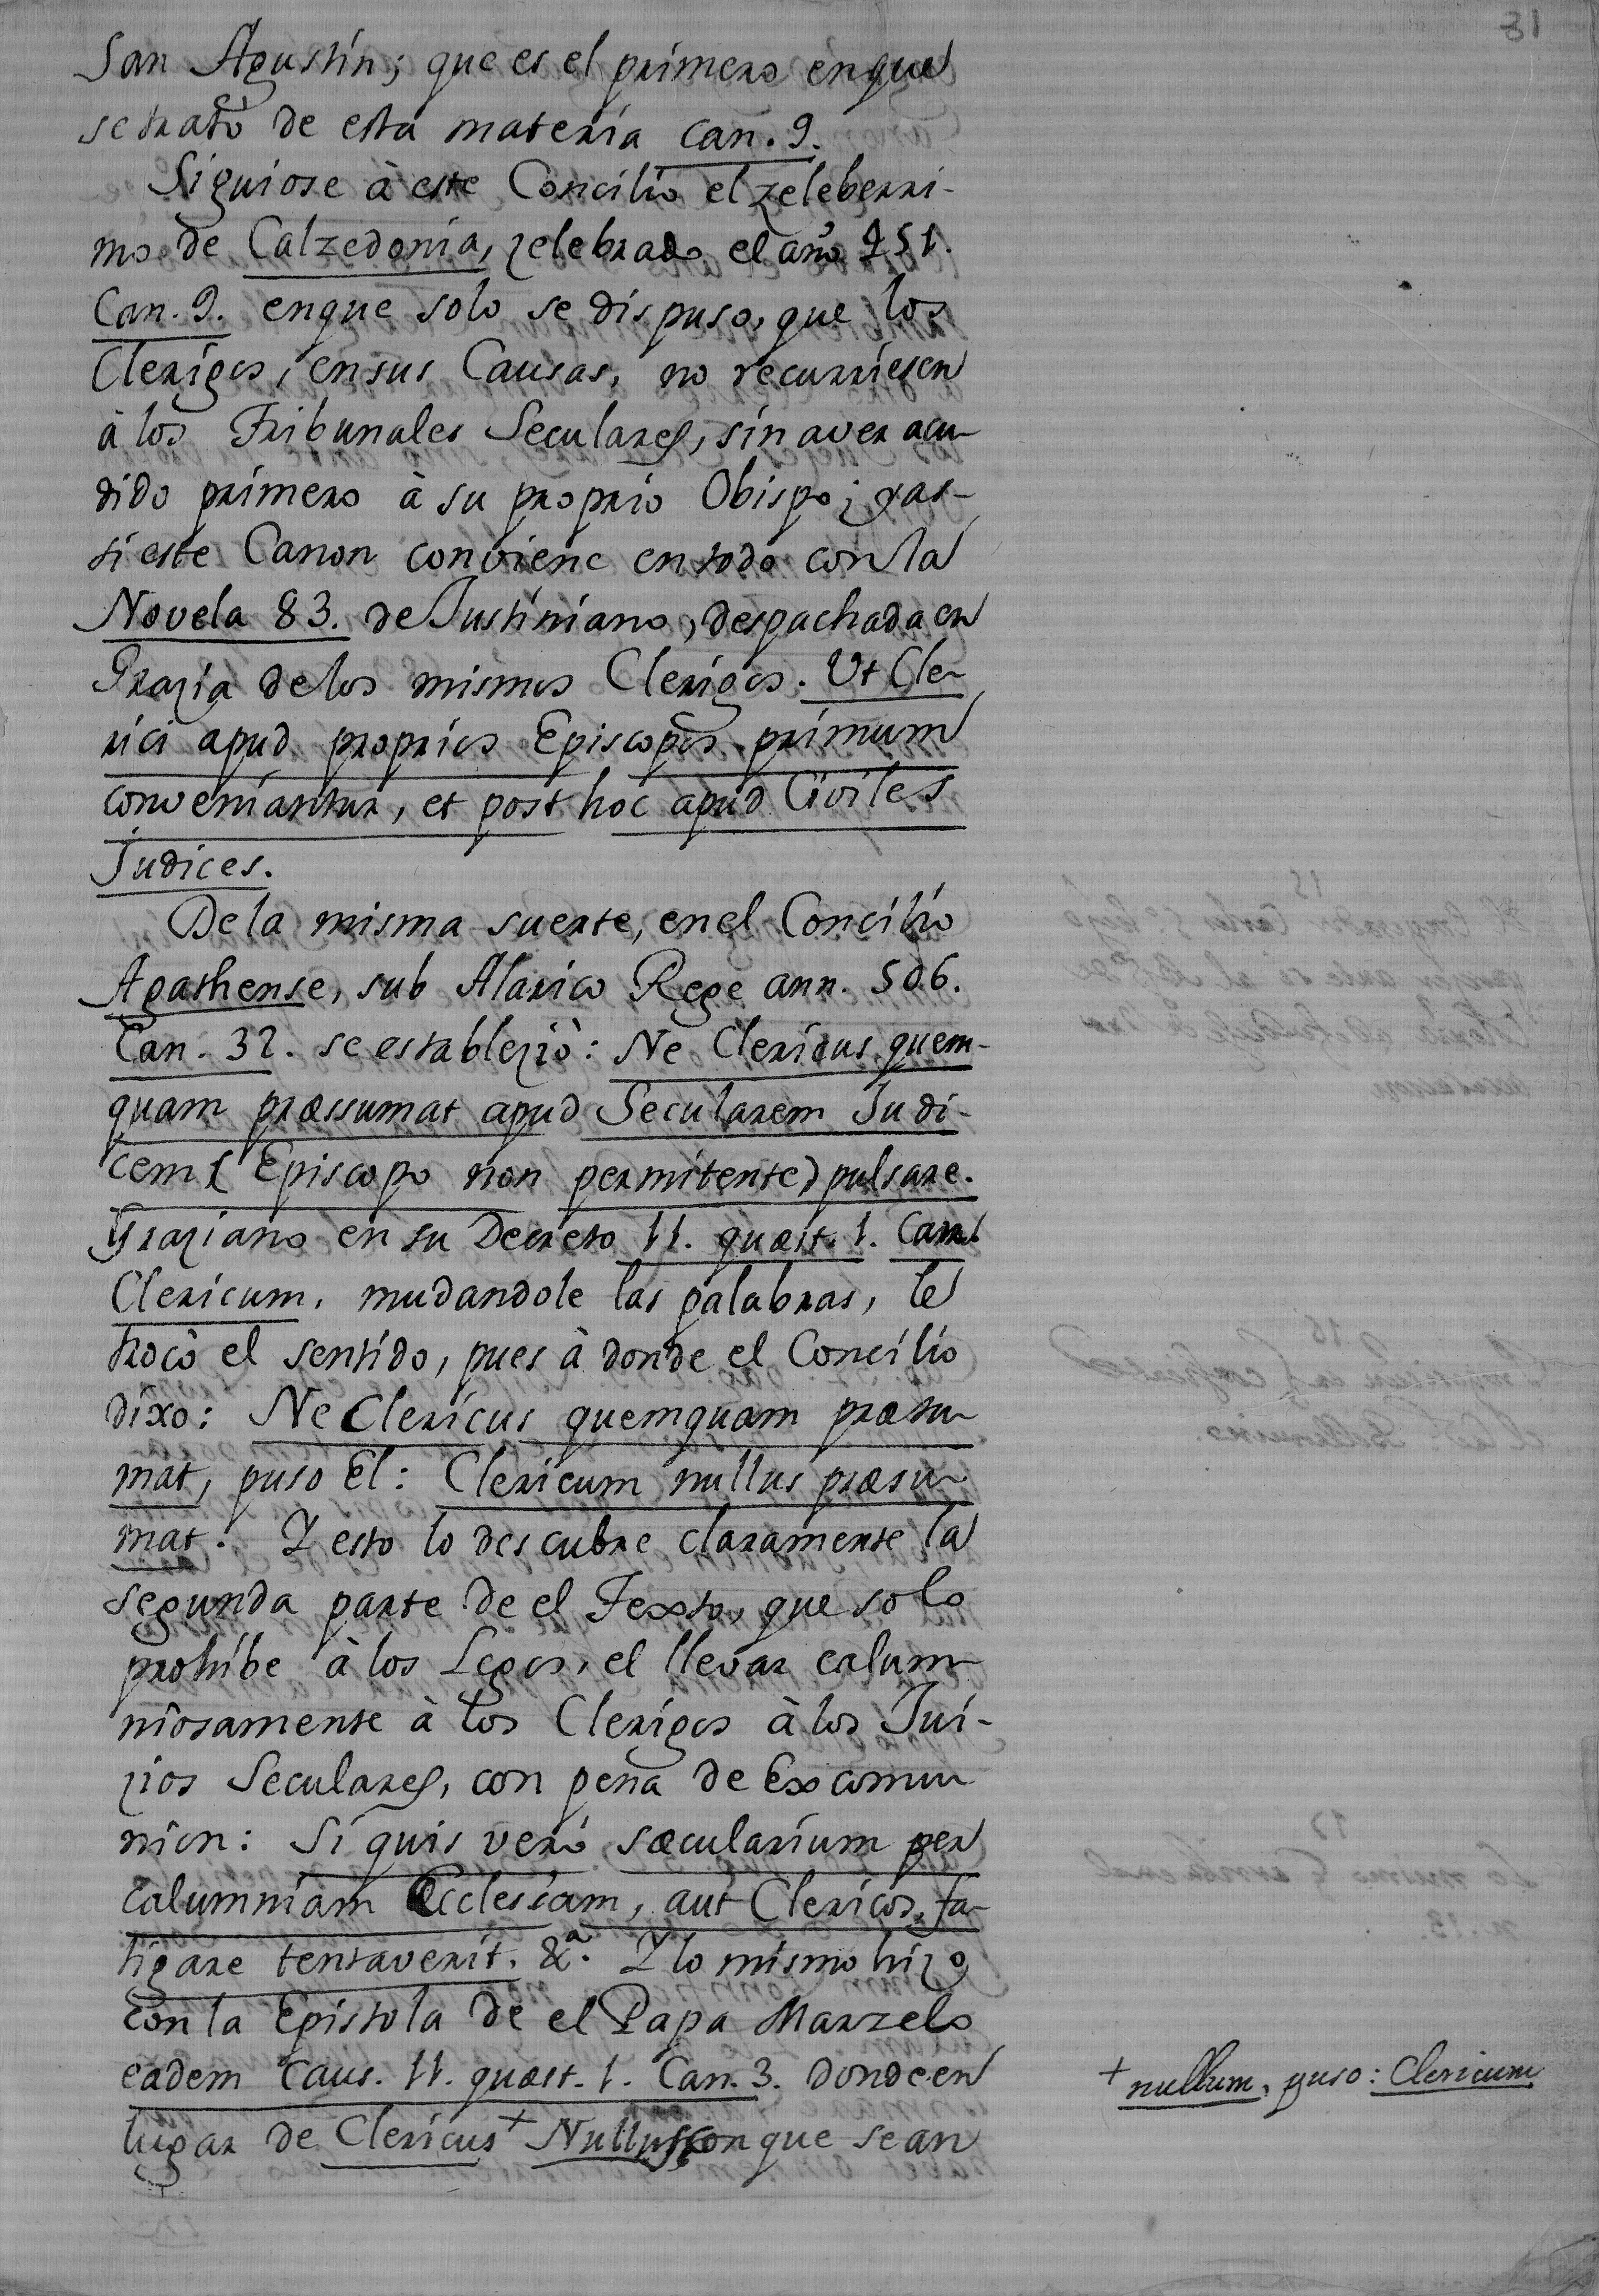 31
San Agustin; que es el primero enque
se tratò de esta materia can. 9.
Siguiose à este Concilio el zeleberri-
mo de Calzedonia, zelebrado el año 451.
Can. 9. enque solo se dispuso, que los
Clerigos, ensus Causas, no recurriesen
à los Tribunales Seculares, sin aver acu-
dido primero à su proprio Obispo; yas-
si este Canon conviene entodo con la
Novela 83. de Justiniano, despachada en
Grazia delos mismos Clerigos. Ut Cle-
rici apud proprios Episcopos primum
conveniantur, et post hoc apud Civiles
Judices.
Dela misma suerte, enel Concilio
Agathense, sub Alarico Rege ann. 506.
Can. 32. se establezio: Ne Clericus quem-
quam præssumat apud Secularem Judi-
cem (Episcopo non permitente) pulsare.
Graziano en su Decreto 11. quæst. 1. Can.
Clericum, mudandole las palabras, le
trocò el sentido, pues à donde el Concilio
dixo: Ne Clericus quemquam præsu-
mat, puso El: Clericum nullus præsu-
mat. Y esto lo descubre claramente la
segunda parte de el Texto, que solo
prohibe à los Legos, el llevar calum-
niosamente à los Clerigos à los Jui-
zios Seculares, con pena de Excomu-
nion: Si quis verò sæcularium per
calumniam Ecclesiam, aut Clericos, fa-
tigare tentaverit. &a. Y lo mismo hizo
con la Epistola de el Papa Marzelo
eadem Caus. 11. quæst. 1. Can. 3. donde en
lugar de Clericus + Nullus conque sean
+ nullum, puso: Clericum